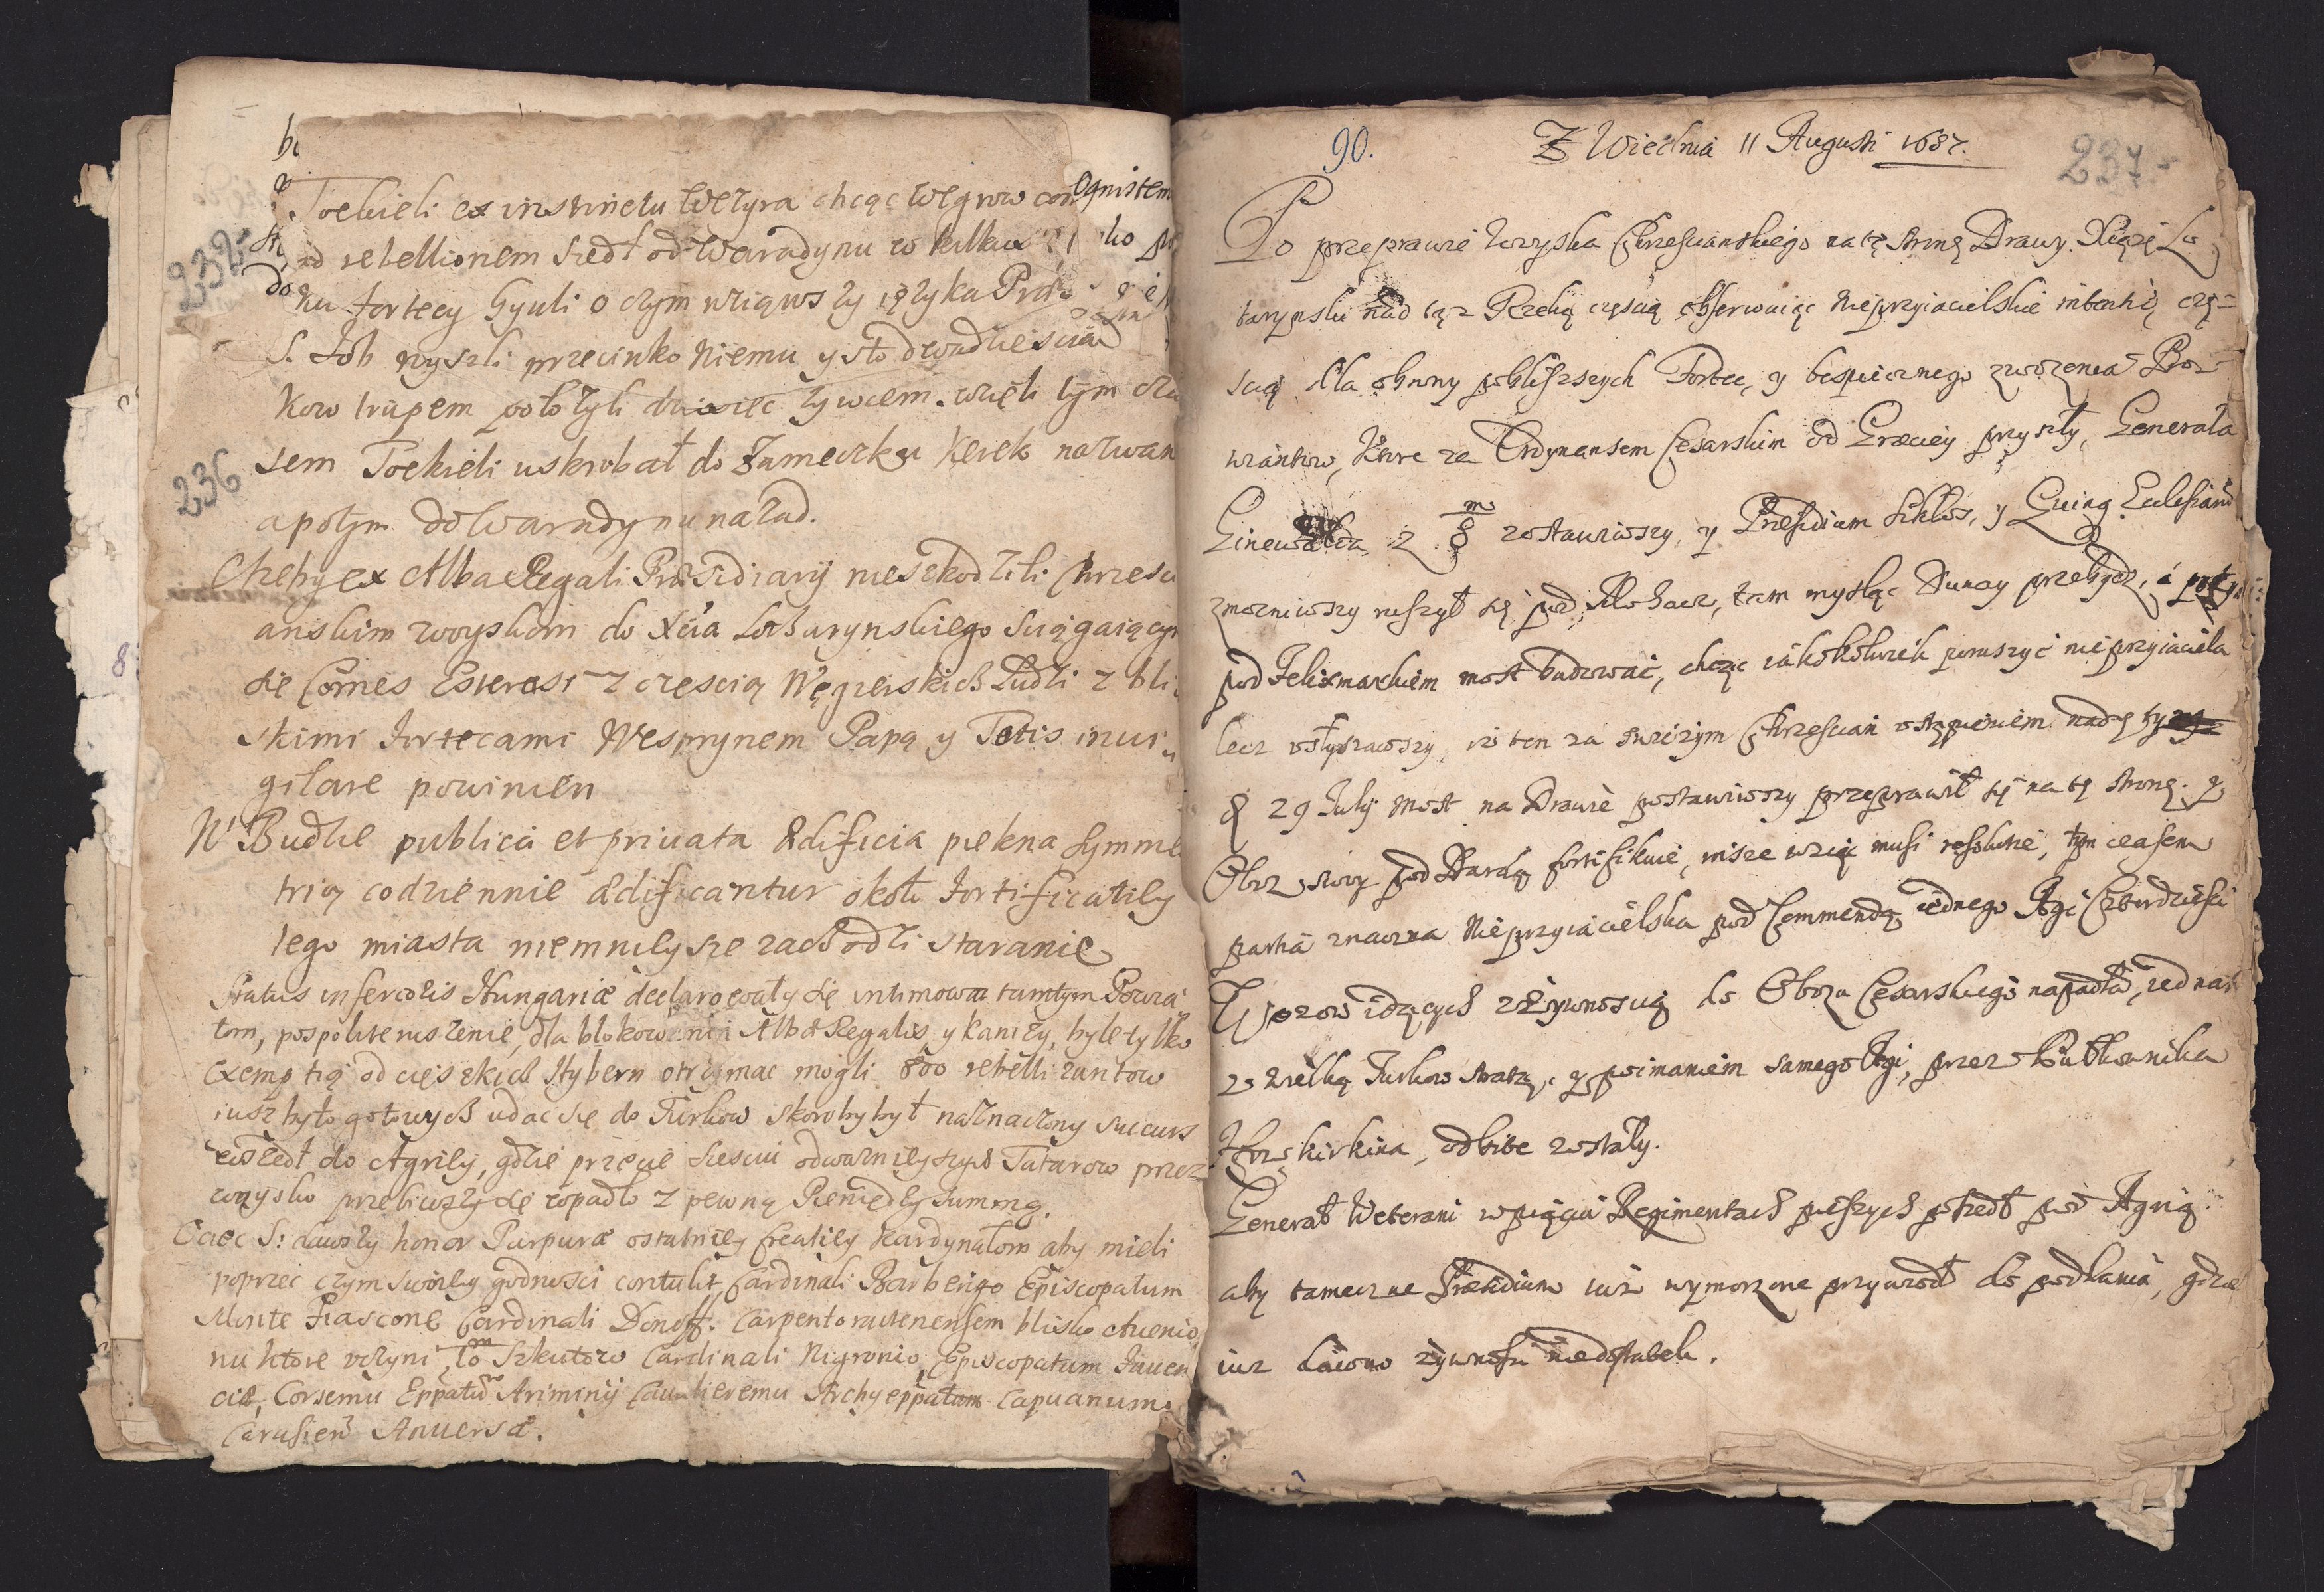 232
236
Toekieli ex instinctu Wezyra chcąc Węgrow
ad rebellionem szedł od Waradynu w kilku
ku fortecy Gyuli o czym wziąwszy ięzyka
S. Job wyszli przeciwko Niemu y sto dwadziescia
kow trupem położyli dziesięc zywcem wzięli tym cza
sem Toekieli uskrobał do Zameczku Kerek nazwan
apotym do Waradynu nazad.
Ażeby ex Alba Regali Præsidiarij nieszkodzili Chrzesci
anskim woyskom do Xcia Lotharynskiego sciągaiącym
się Comes Esterasi z częscią Węgierskich Ludzi z bli
skimi fortecami Wesprynem Papą y Totis inui
gilare powinien
W Budzie publica et priuata ædificia piekna symme
trią codziennie ædificantur około fortificatiey
tego miasta niemnieysze zachodzi staranie
Status inferioris Hungariæ declarowały się intimowa tamtym Powia
tom, pospolite ruszenie, dla blokowania Albæ Regalis, y Kaniży, byle tylko
Exemptią od cięszkich Hybern otrzymac mogli 800 rebellizantow
iusz było gotowych udac się do Turkow skoroby był naznaczony succurs
wszedł do Agriey, gdzie przecie szesciu odwaznieyszych Tatarow przez
woysko przebiwszy się wpadło z pewną Pieniędzy summą.
Ociec S: dawszy honor Purpuræ ostatniey Creatiey Kardynałom aby mieli
poprzec czym swoiey godnosci contulit Cardinali Barberigo Episcopatum
Monte Fiascone Cardinali Denoff. Carpentoractensem blisko Auenio
nu ktore vczyni Szkutow Cardinali Nigronio Episcopatum Fauen
ciæ, Corsemu Eppatũ Ariminij Caualieremu Archyeppatum Capuanum.
Carusieñ Anuersæ.
Ognistem
90.
Z Wiednia 11 Augusti 1687.
237.
Po przeprawie Woyska Chrzescianskiego na tę stronę Drawy. Xiąże Lo
taryński nad tąz Rzeką częscią obserwuiąc Nieprzyiacielskie intentie, czę=
scią dla obrony poblizszych Fortec, y bespiecznego zwozenia Pro=
wiantow, ktore za Ordynansem Cesarskim od Graciey przyszły, Generała
z 8 zostawiwszy, y Præsidium Siklos, y Quinq Ecclesiarũ
zmocniwszy ruszył się pod Mohacz, tam mysląc Dunay przebydz, a potym
pod Felixmarkiem most budować, chcąc iakokolwiek poruszyć nieprzyiaciela
lecz vsłyszawszy, iz ten za swieżym Chrzescian ostąpieniem
29 July most na Drawie postawiwszy przeprawił się na tę stronę. y
Oboz swoy pod Dardą fortifikuie, insze wziąc musi resolutie, tym czasem
partia znaczna Nieprzyiacielska pod Commendą iednego Agi Czterdziesci
Wozow idących z Zywnoscią do Obozu Cesarskiego napadła, iednak
z wielką Turkow stratą, y poimaniem samego Agi, przez Pułkownika
odbite zostały.
Generał Weterani w pięciu Regimentach pieszych poszedł pod Agrią
aby tameczne Præsidium iuz wymorzone przywiodł do poddania, gdzie
iuz dawno zywnosci niedostatek.